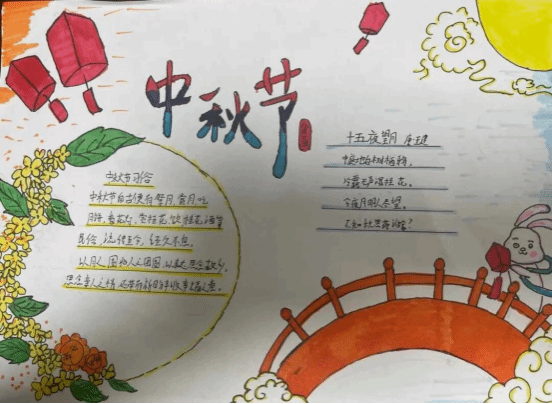 中秋节
中秋节习俗
中秋节自古便有祭月、赏月、吃
月饼、看花灯、赏桂花、饮桂花酒等
民俗，流传至今，经久不息。
以月之圆兆人之团圆，以寄托思念故乡，
思念亲人之情，还有祈盼丰收、幸福之意。
十五夜望月 唐 王建
中庭地白树栖鸦，
冷露无声湿桂花。
今夜月明人尽望，
不知秋思落谁家？